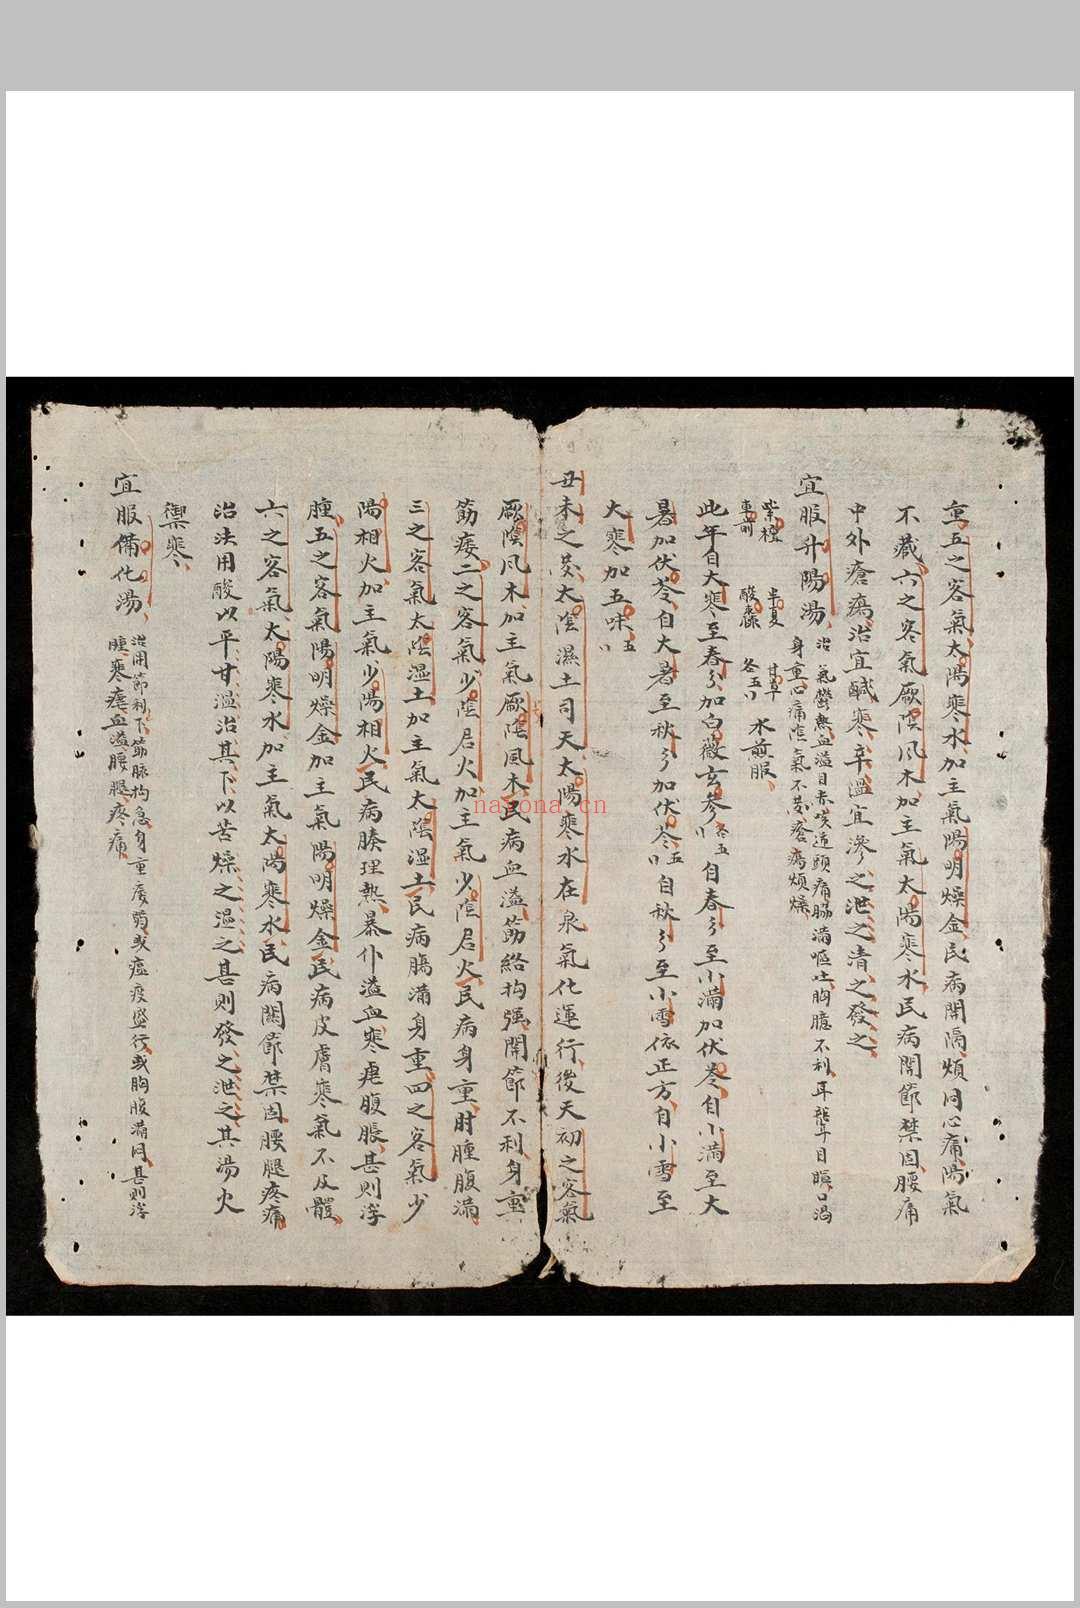 重五之客氣太陽寒水加主氣陽明燥金民病関隔煩闷心痛陽氣
不藏六之客氣厥陰风木加主氣太陽寒水民病関節禁固腰痛
中外瘡瘍治宜鹹寒辛温宜滲之泄之清之發之
宜服升陽湯
治氣鬱熱血溢目赤咳逆頭痛脇满嘔吐胸臆不利耳聾目瞑口渴
身重心痛陰氣不发瘡瘍煩燥
紫檀 半夏 甘草
車前 酸棗 各五
水煎服
此年自大寒至春分加白薇玄参各五自春分至小满加伏苓自小满至大
暑加伏苓自大暑至秋分加伏苓五自秋分至小雪依正方自小雪至
大寒加五味五
丑未之发太陰濕土司天太陽寒水在泉氣化運行後天初之客氣
厥陰风木加主氣厥陰風木民病血溢筋絡拘强関節不利身重
筋痿二之客氣少陰君火加主氣少陰君火民病身重肘腫腹满
三之客氣太陰湿土加主氣太陰湿土民病腨满身重四之客氣少
陽相火加主氣少陽相火民病腠理熱暴仆溢血寒瘧腹脹甚則浮
腫五之客氣陽明燥金加主氣陽明燥金民病皮膚寒氣不及體
六之客氣太陽寒水加主氣太陽寒水民病関節禁固腰腿疼痛
治法用酸以平甘温治其下以苦燥之温之甚則發之泄之其湯火
禦寒
宜服備化湯
治関節利下筋脉拘急身重痿弱或瘟疫盛行或胸腹满闷甚則浮
腫寒瘧血溢腰腿疼痛
nayona.cn